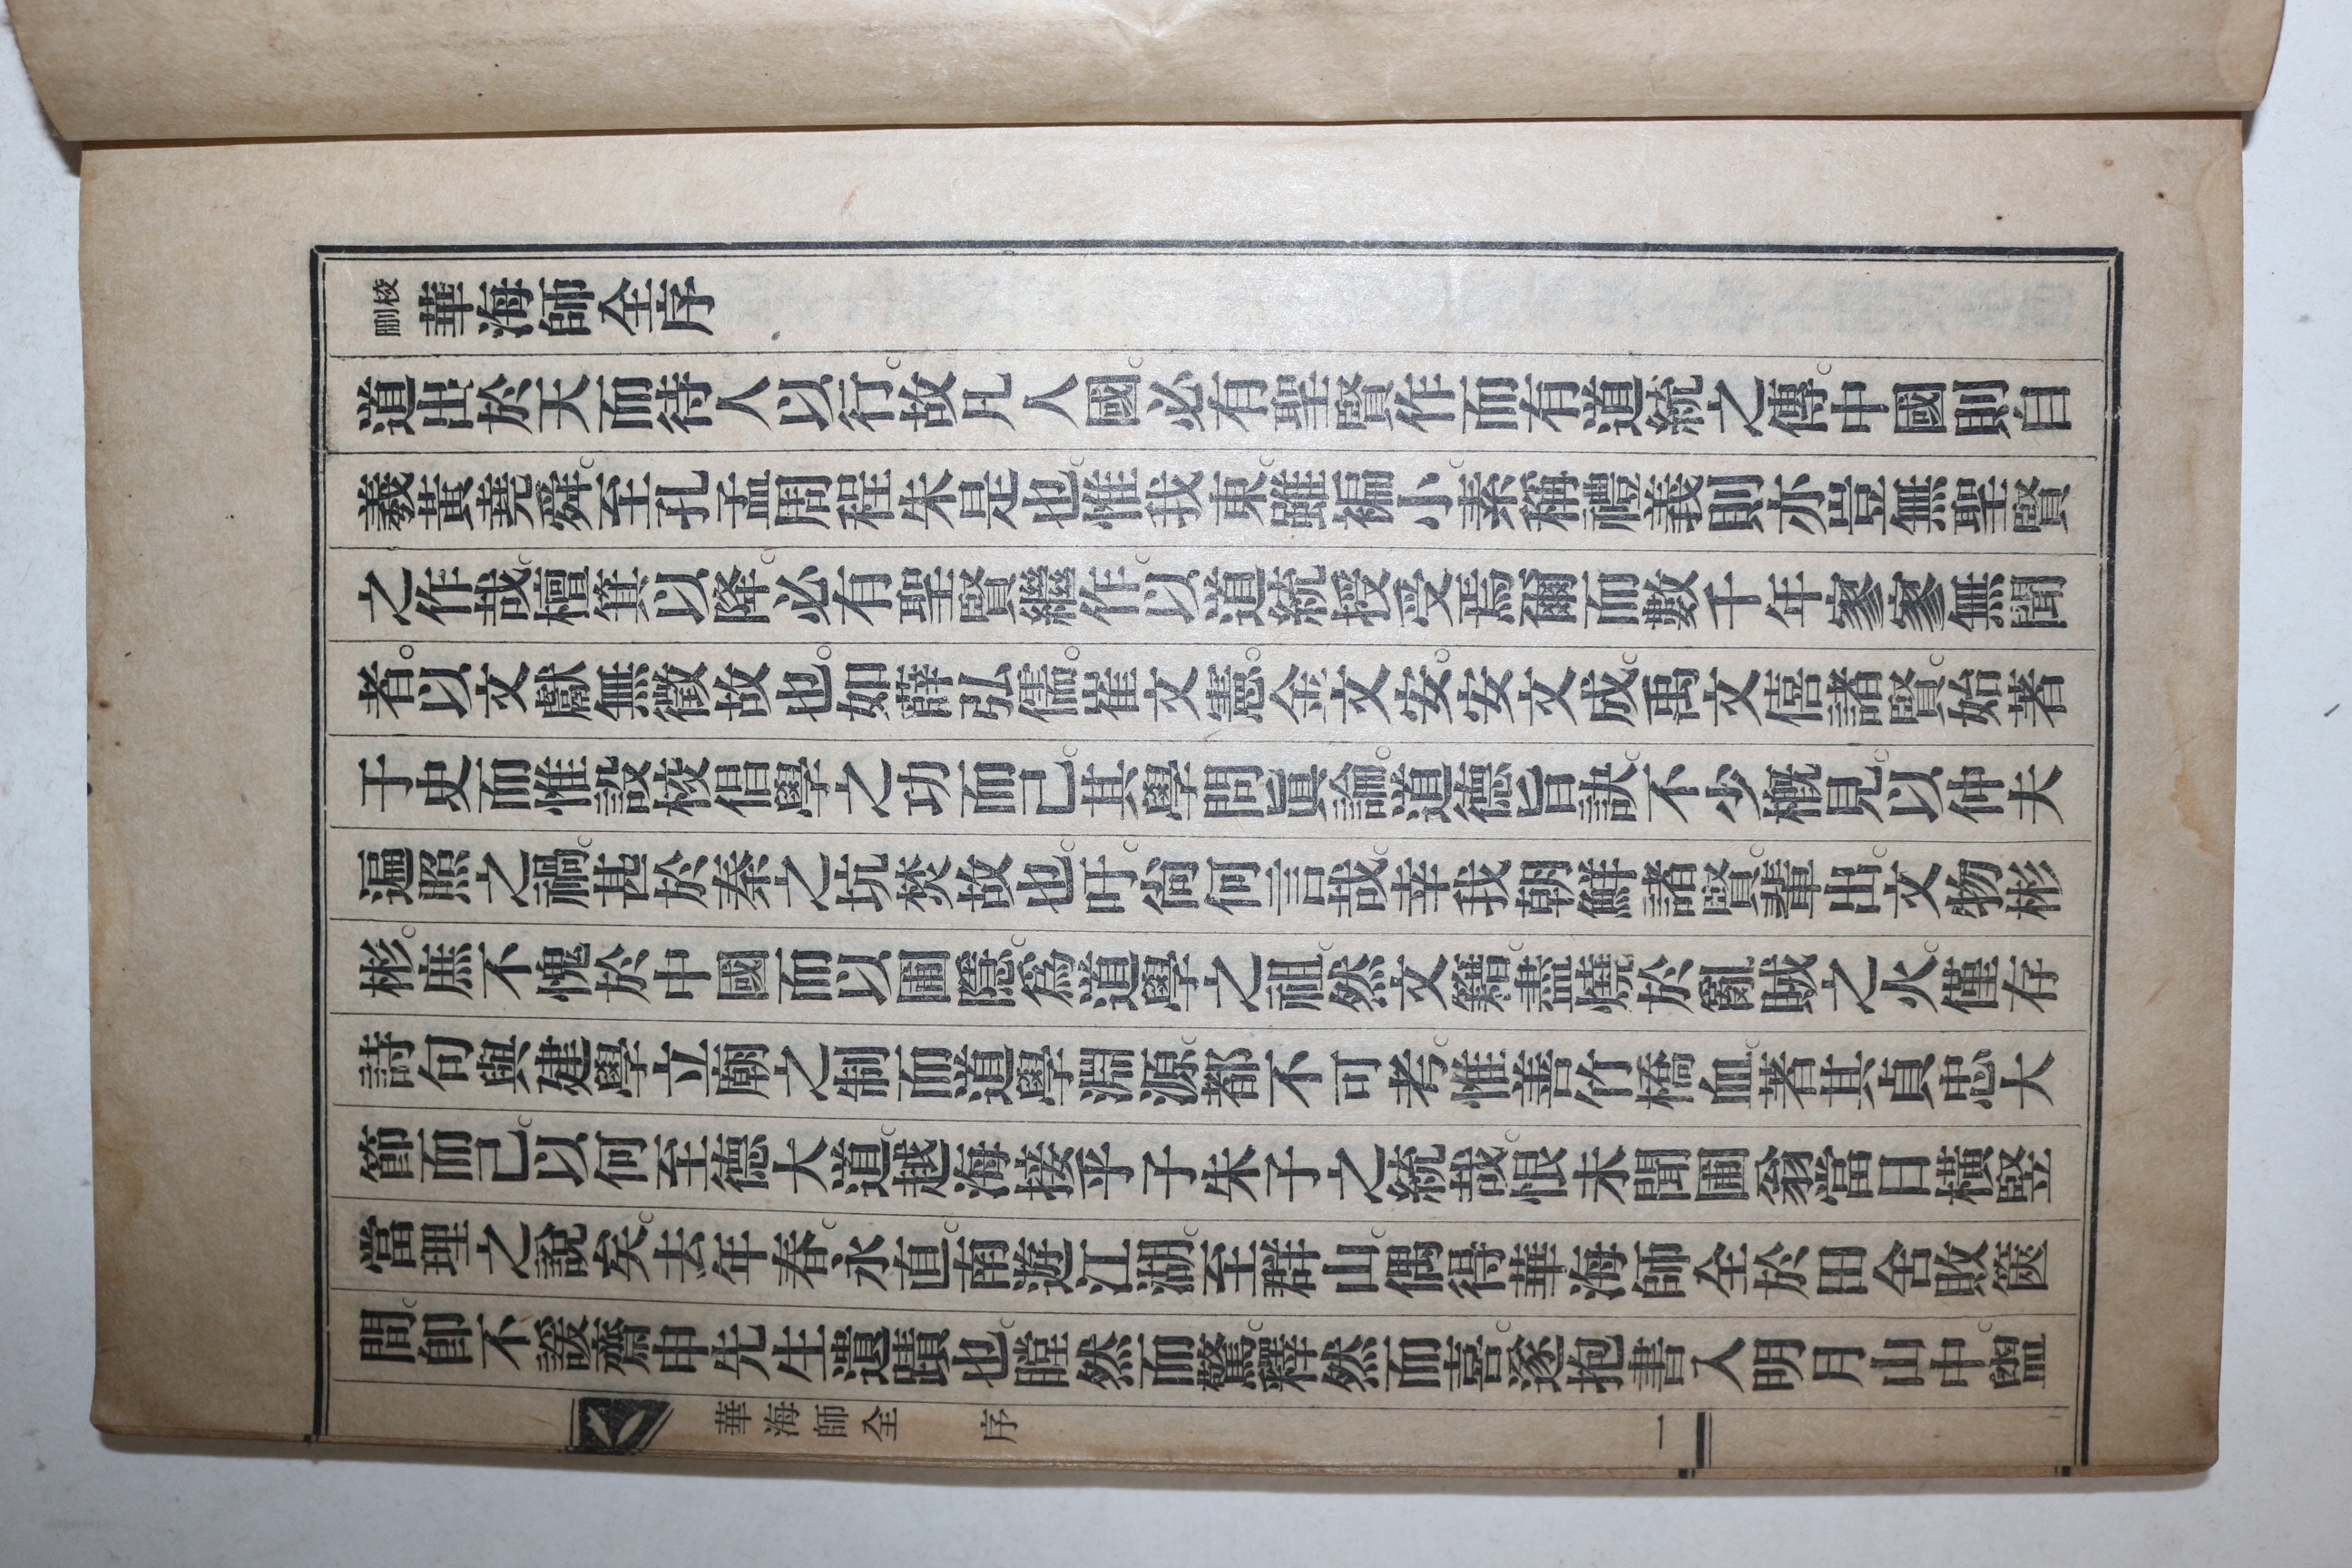 校刪華海師全序
道出於天而待人以行。故凡人國。必有聖賢作而有道統之傳。中國則自
羲黃堯舜。至孔孟周程朱是也。惟我東。雖褊小。素稱禮義則亦豈無聖賢
之作哉。檀箕以降。必有聖賢繼作。以道統授受焉爾而數千年寥寥無聞
者。以文獻無徵故也。如薛弘儒。崔文憲。金文安。安文成。禹文僖諸賢。始著
于史而惟設校倡學之功而已。其學問眞論。道德旨訣。不少槪見。以仲夫
遍照之禍。甚於秦之坑焚故也。吁。尙何言哉。幸我朝鮮諸賢。輩出。文物彬
彬。庶不愧於中國而以圃隱。爲道學之祖。然文籍。盡燒於亂賊之火。僅存
詩句與建學立廟之制而道學淵源。都不可考。惟善竹橋血。著其貞忠大
節而已。以何至德大道。越海接乎子朱子之統哉。恨未聞圃翁當日橫竪
當理之說矣。去年春。永直。南遊江湖。至群山。偶得華海師全於田舍敗篋
間。卽不諼齋申先生遺蹟也。瞠然而驚。釋然而喜。遂抱書入明月山中。盥
華海師全 序 一